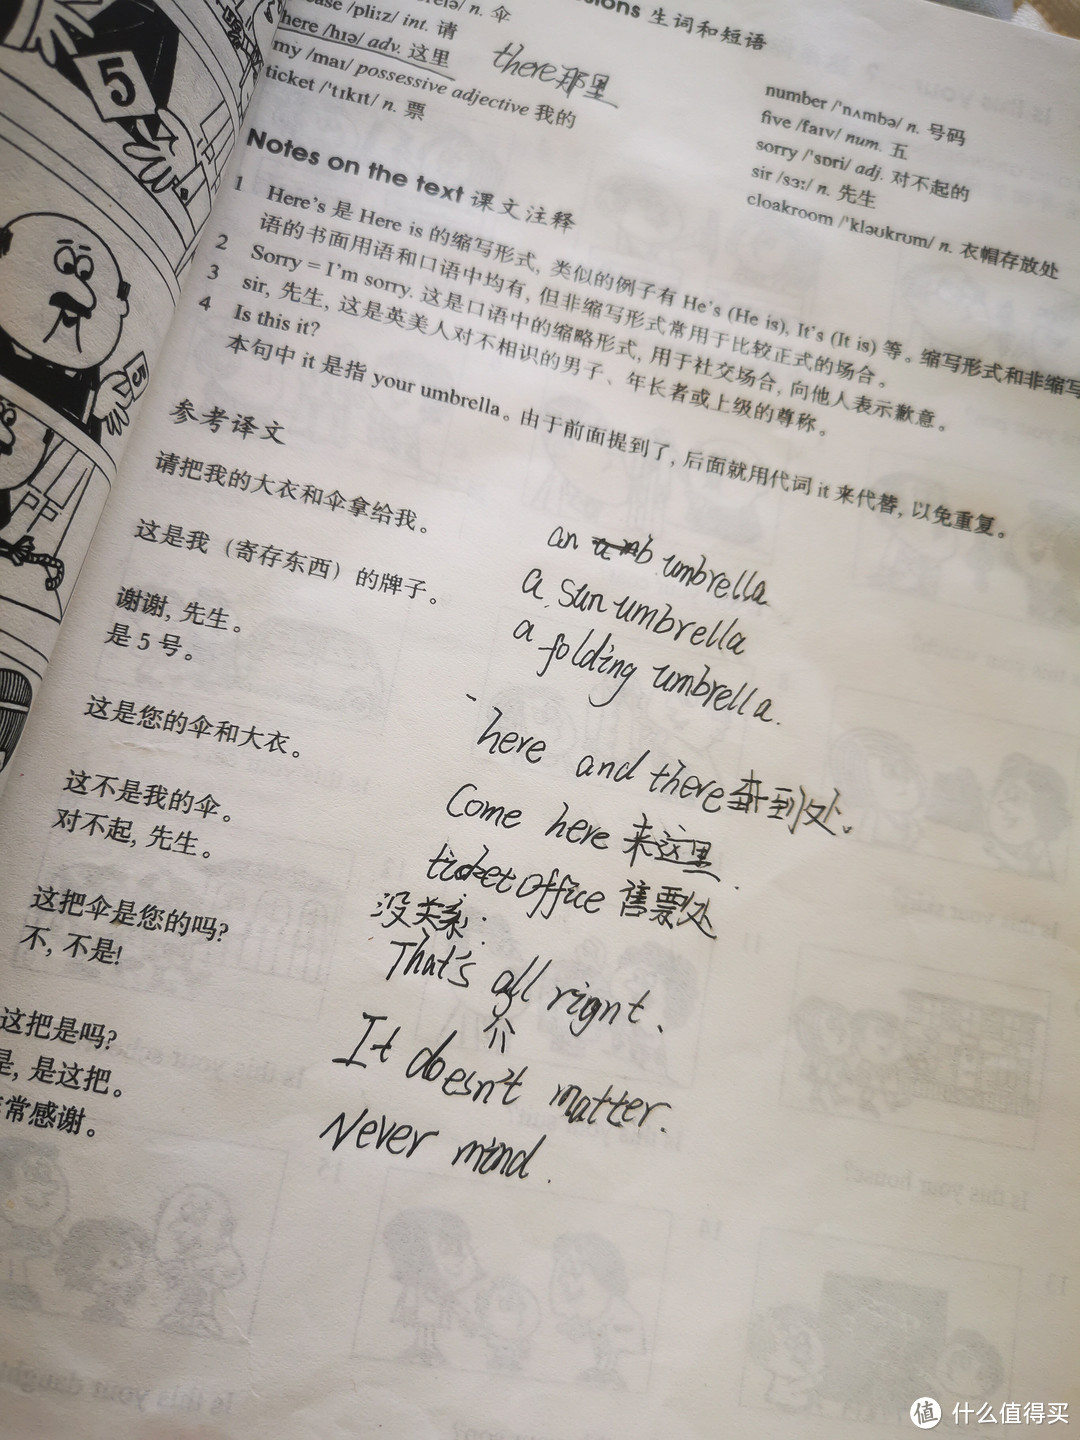 生词和短语
/ n. 伞
/pliːz/ int. 请
here /hɪə/ adv. 这里
there 那里
my /maɪ/ possessive adjective 我的
ticket /'tɪkɪt/ n. 票
number /'nʌmbə/ n. 号码
five /faɪv/ num. 五
sorry /'sɒri/ adj. 对不起的
sir /sɜː/ n. 先生
cloakroom /'kləʊkrʊm/ n. 衣帽存放处
Notes on the text 课文注释
1 Here's 是 Here is 的缩写形式, 类似的例子有 He's (He is), It's (It is) 等。缩写形式和非缩写
语的书面用语和口语中均有, 但非缩写形式常用于比较正式的场合。
2 Sorry = I'm sorry. 这是口语中的缩略形式, 用于社交场合, 向他人表示歉意。
3 sir, 先生, 这是英美人对不相识的男子、年长者或上级的尊称。
4 Is this it?
本句中 it 是指 your umbrella。由于前面提到了, 后面就用代词 it 来代替, 以免重复。
参考译文
请把我的大衣和伞拿给我。
这是我（寄存东西）的牌子。
谢谢, 先生。
是 5 号。
这是您的伞和大衣。
这不是我的伞。
对不起, 先生。
这把伞是您的吗?
不, 不是!
这把是吗?
是, 是这把。
常感谢。
an umbrella
a sun umbrella
a folding umbrella.
here and there 到处。
Come here 来这里.
ticket office 售票处
没关系.
That's all rignt.
It doesn't matter.
Never mind.
5
5
值 什么值得买